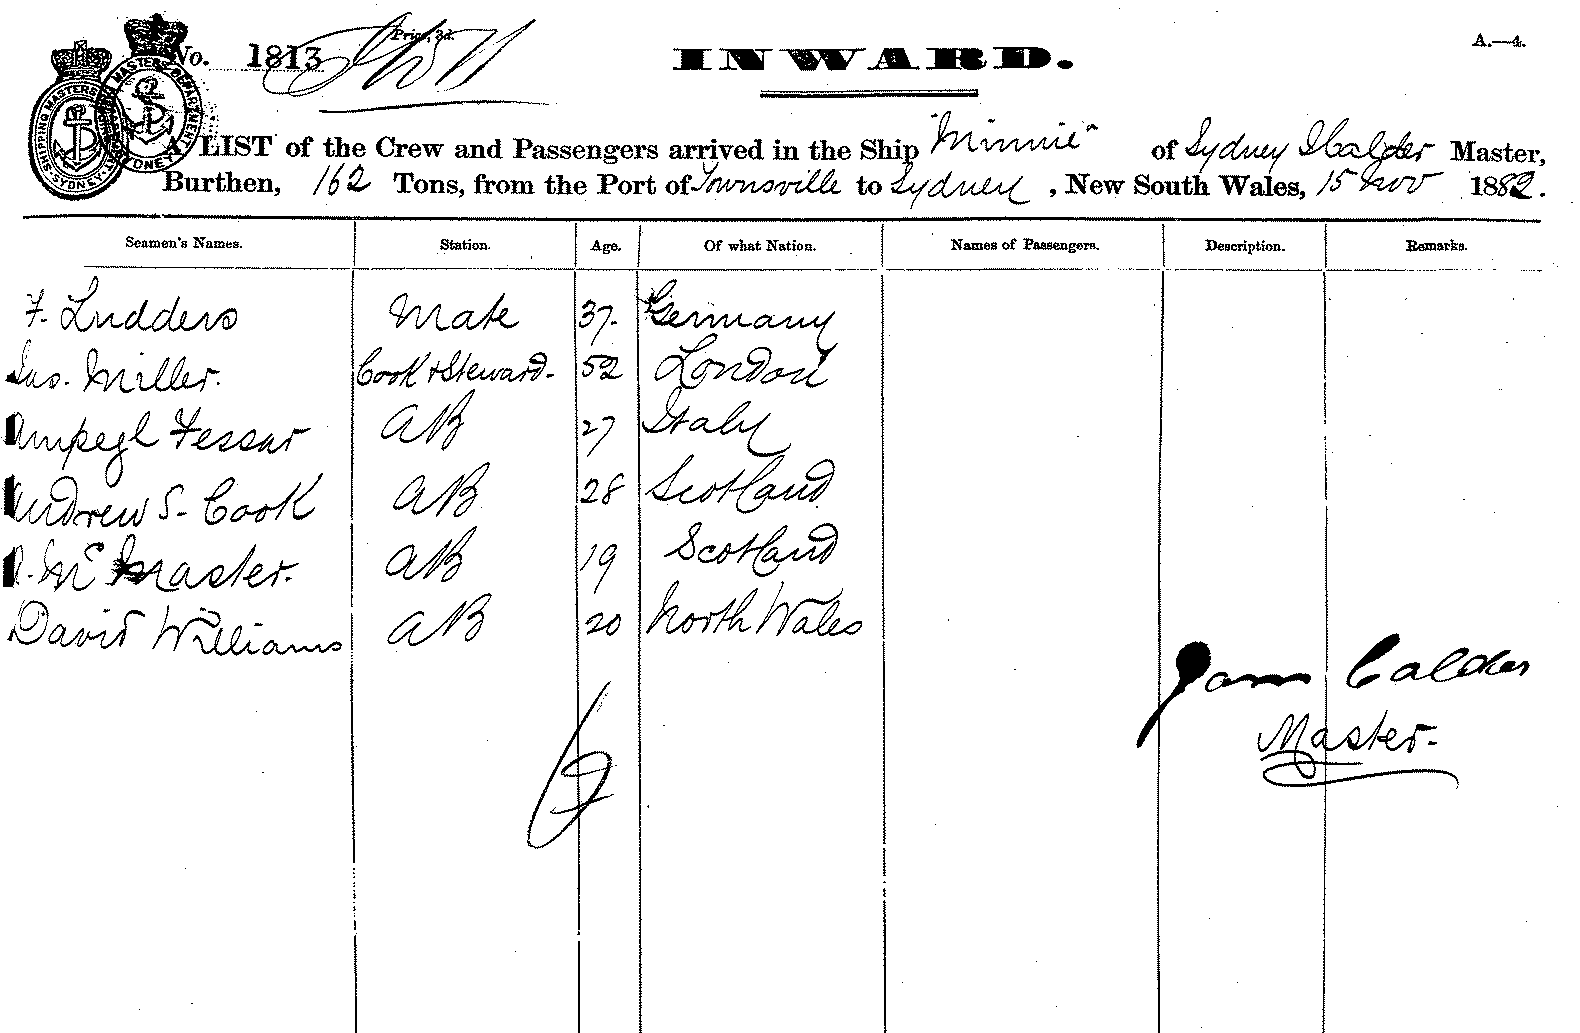 No. 1813 Price, 3d.
INWARD.
A.—4.
SHIPPING MASTERS DEPARTMENT SYDNEY
A LIST of the Crew and Passengers arrived in the Ship "Minnie" of Sydney J Calder Master,
Burthen, 162 Tons, from the Port of Townsville to Sydney, New South Wales, 15 Nov 1882.
Seamen's Names. Station. Age. Of what Nation. Names of Passengers. Description. Remarks.
F. Ludders Mate 37. Germany
Jas. Miller. Cook & Steward. 52 London
Fessar AB 27 Italy
Andrew S. Cook AB 28 Scotland
A. Mc Master. AB 19 Scotland
David Williams AB 20 North Wales
Calder
Master.